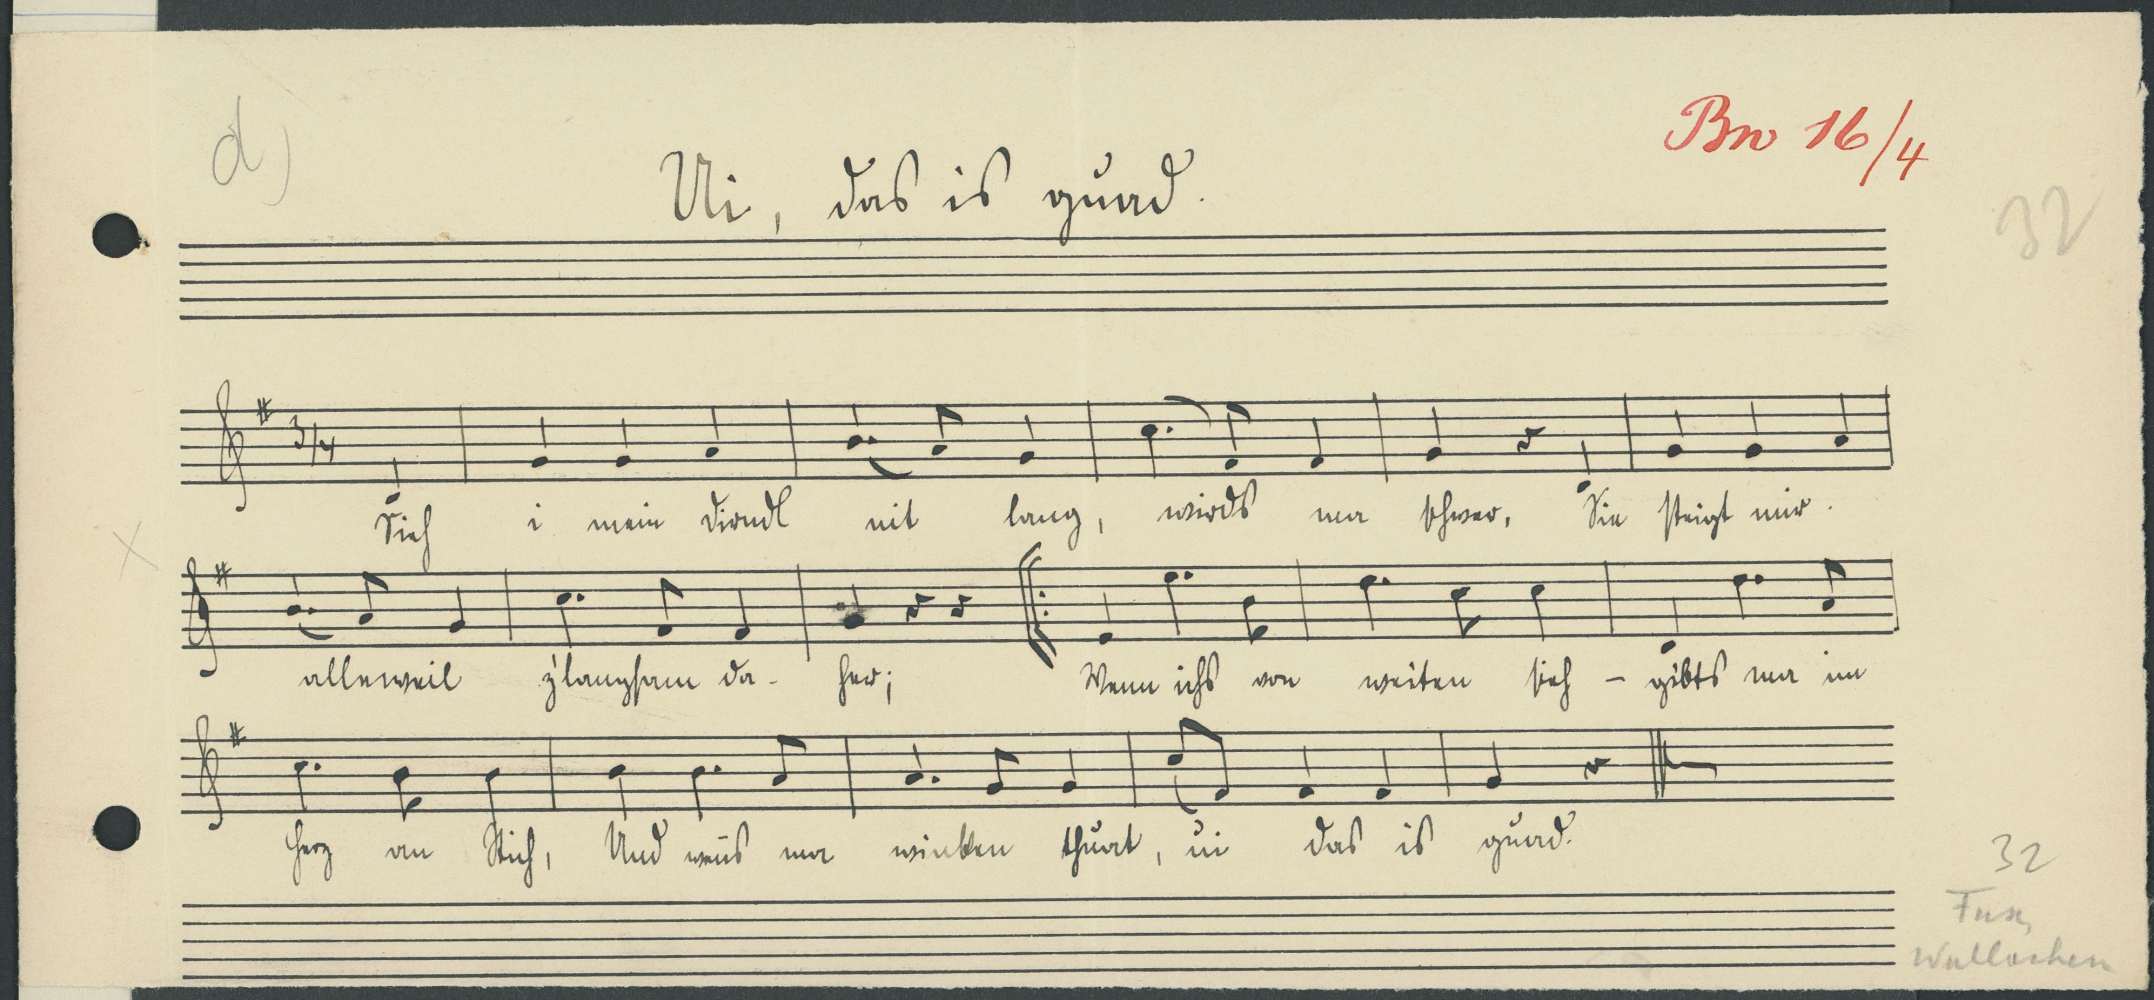 d)
Bn 16/4
Ui, das is guad.
32
3/4
Sieh i mein Dirndl nit lang, wirds ma schwer, Sie steigt mir.
alleweil z'langsam da- her; Wenn ichs von weiten sieh – gibts ma im
Herz an Stich, Und wens ma winken thuat, ui das is guad.
32
Fux,
Wallachen